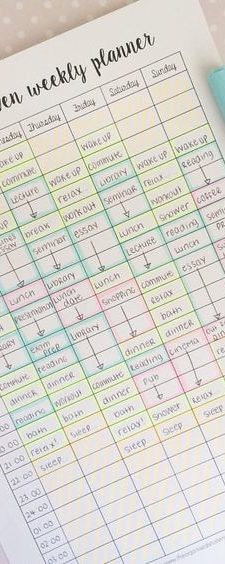 weekly planner
Thursday Friday Saturday Sunday
wake up
wake up
commute
commute
wake up
wake up
wake up
lecture
relax...
library
relax...
reading
workout
seminar
workout
coffee
break
essay
shower
seminar
seminar
lunch
reading
lecture
lunch
library
lunch
commute
essay
lunch
lunch date
shopping
relax
presentation
bath
library
dinner
exam prep
dinner
cinema
commute
reading
reading
dinner
dinner
commute
pub
reading
workout
dinner
relax
20:00
bath
bath
bath
shower
sleep
21:00
relax!
sleep
relax!
sleep
22:00
sleep...
sleep
23:00
24:00
01:00
02:00
03:00